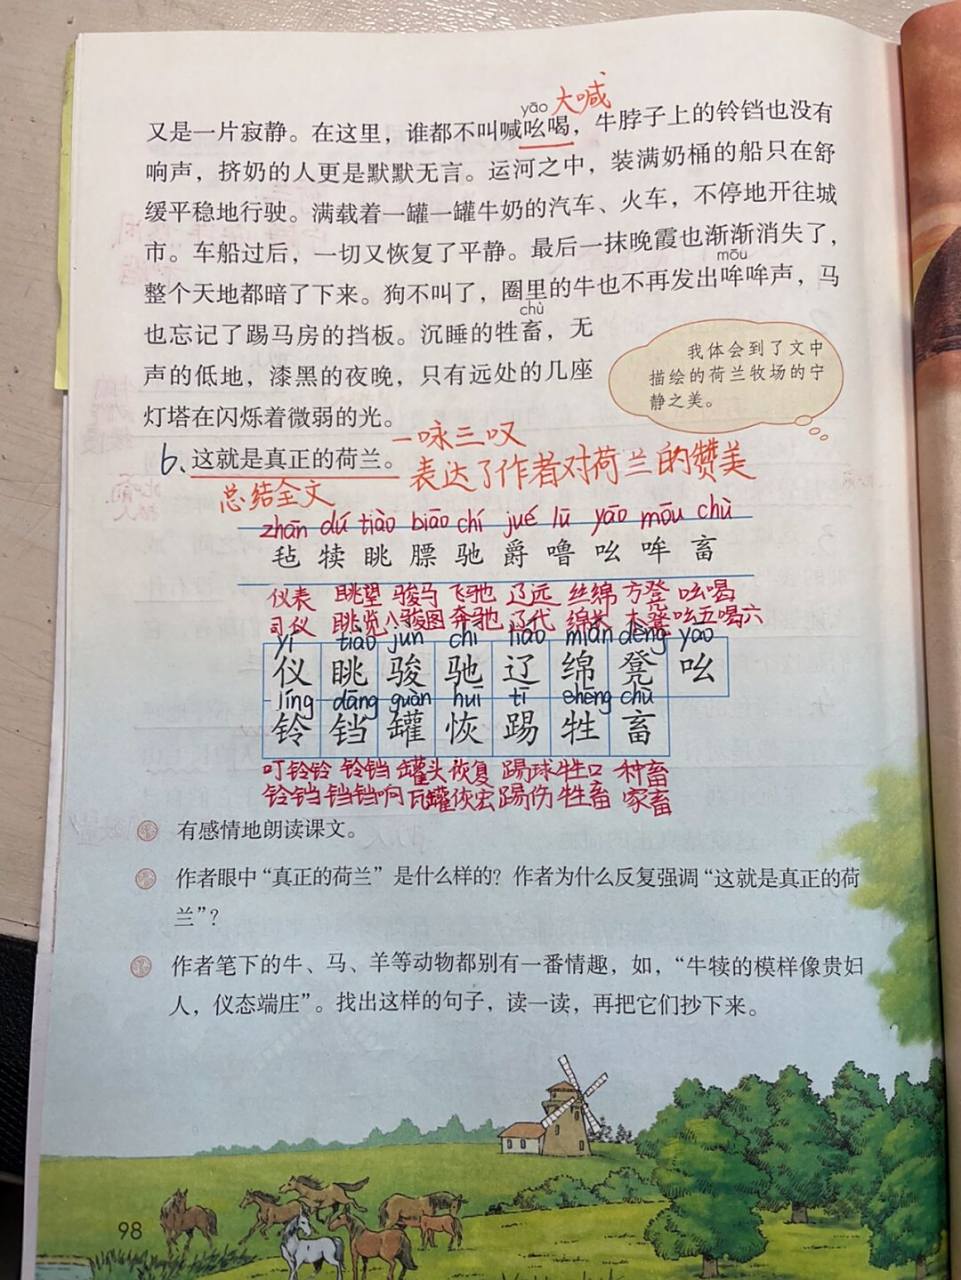 yāo 大喊
又是一片寂静。在这里，谁都不叫喊吆喝，牛脖子上的铃铛也没有
响声，挤奶的人更是默默无言。运河之中，装满奶桶的船只在舒
缓平稳地行驶。满载着一罐一罐牛奶的汽车、火车，不停地开往城
市。车船过后，一切又恢复了平静。最后一抹晚霞也渐渐消失了，
mōu
整个天地都暗了下来。狗不叫了，圈里的牛也不再发出哞哞声，马
chù
也忘记了踢马房的挡板。沉睡的牲畜，无
声的低地，漆黑的夜晚，只有远处的几座
灯塔在闪烁着微弱的光。
我体会到了文中
描绘的荷兰牧场的宁
静之美。
一咏三叹
6、这就是真正的荷兰。表达了作者对荷兰的赞美
总结全文
zhān dú tiào biāo chí jué lū yāo mōu chù
毡 犊 眺 膘 驰 爵 噜 吆 哞 畜
仪表 眺望 骏马 飞驰 辽远 丝绵 方凳 吆喝
司仪 眺览 八骏图 奔驰 辽代 绵长 木凳 吆五喝六
yí tiào jùn chí liáo mián dèng yāo
仪 眺 骏 驰 辽 绵 凳 吆
líng dāng guàn huī tī shēng chù
铃 铛 罐 恢 踢 牲 畜
叮铃铃 铃铛 罐头 恢复 踢球 牲口 种畜
铃铛 铛铛响 瓦罐 恢宏 踢伤 牲畜 家畜
有感情地朗读课文。
作者眼中“真正的荷兰”是什么样的？作者为什么反复强调“这就是真正的荷
兰”？
作者笔下的牛、马、羊等动物都别有一番情趣，如，“牛犊的模样像贵妇
人，仪态端庄”。找出这样的句子，读一读，再把它们抄下来。
98